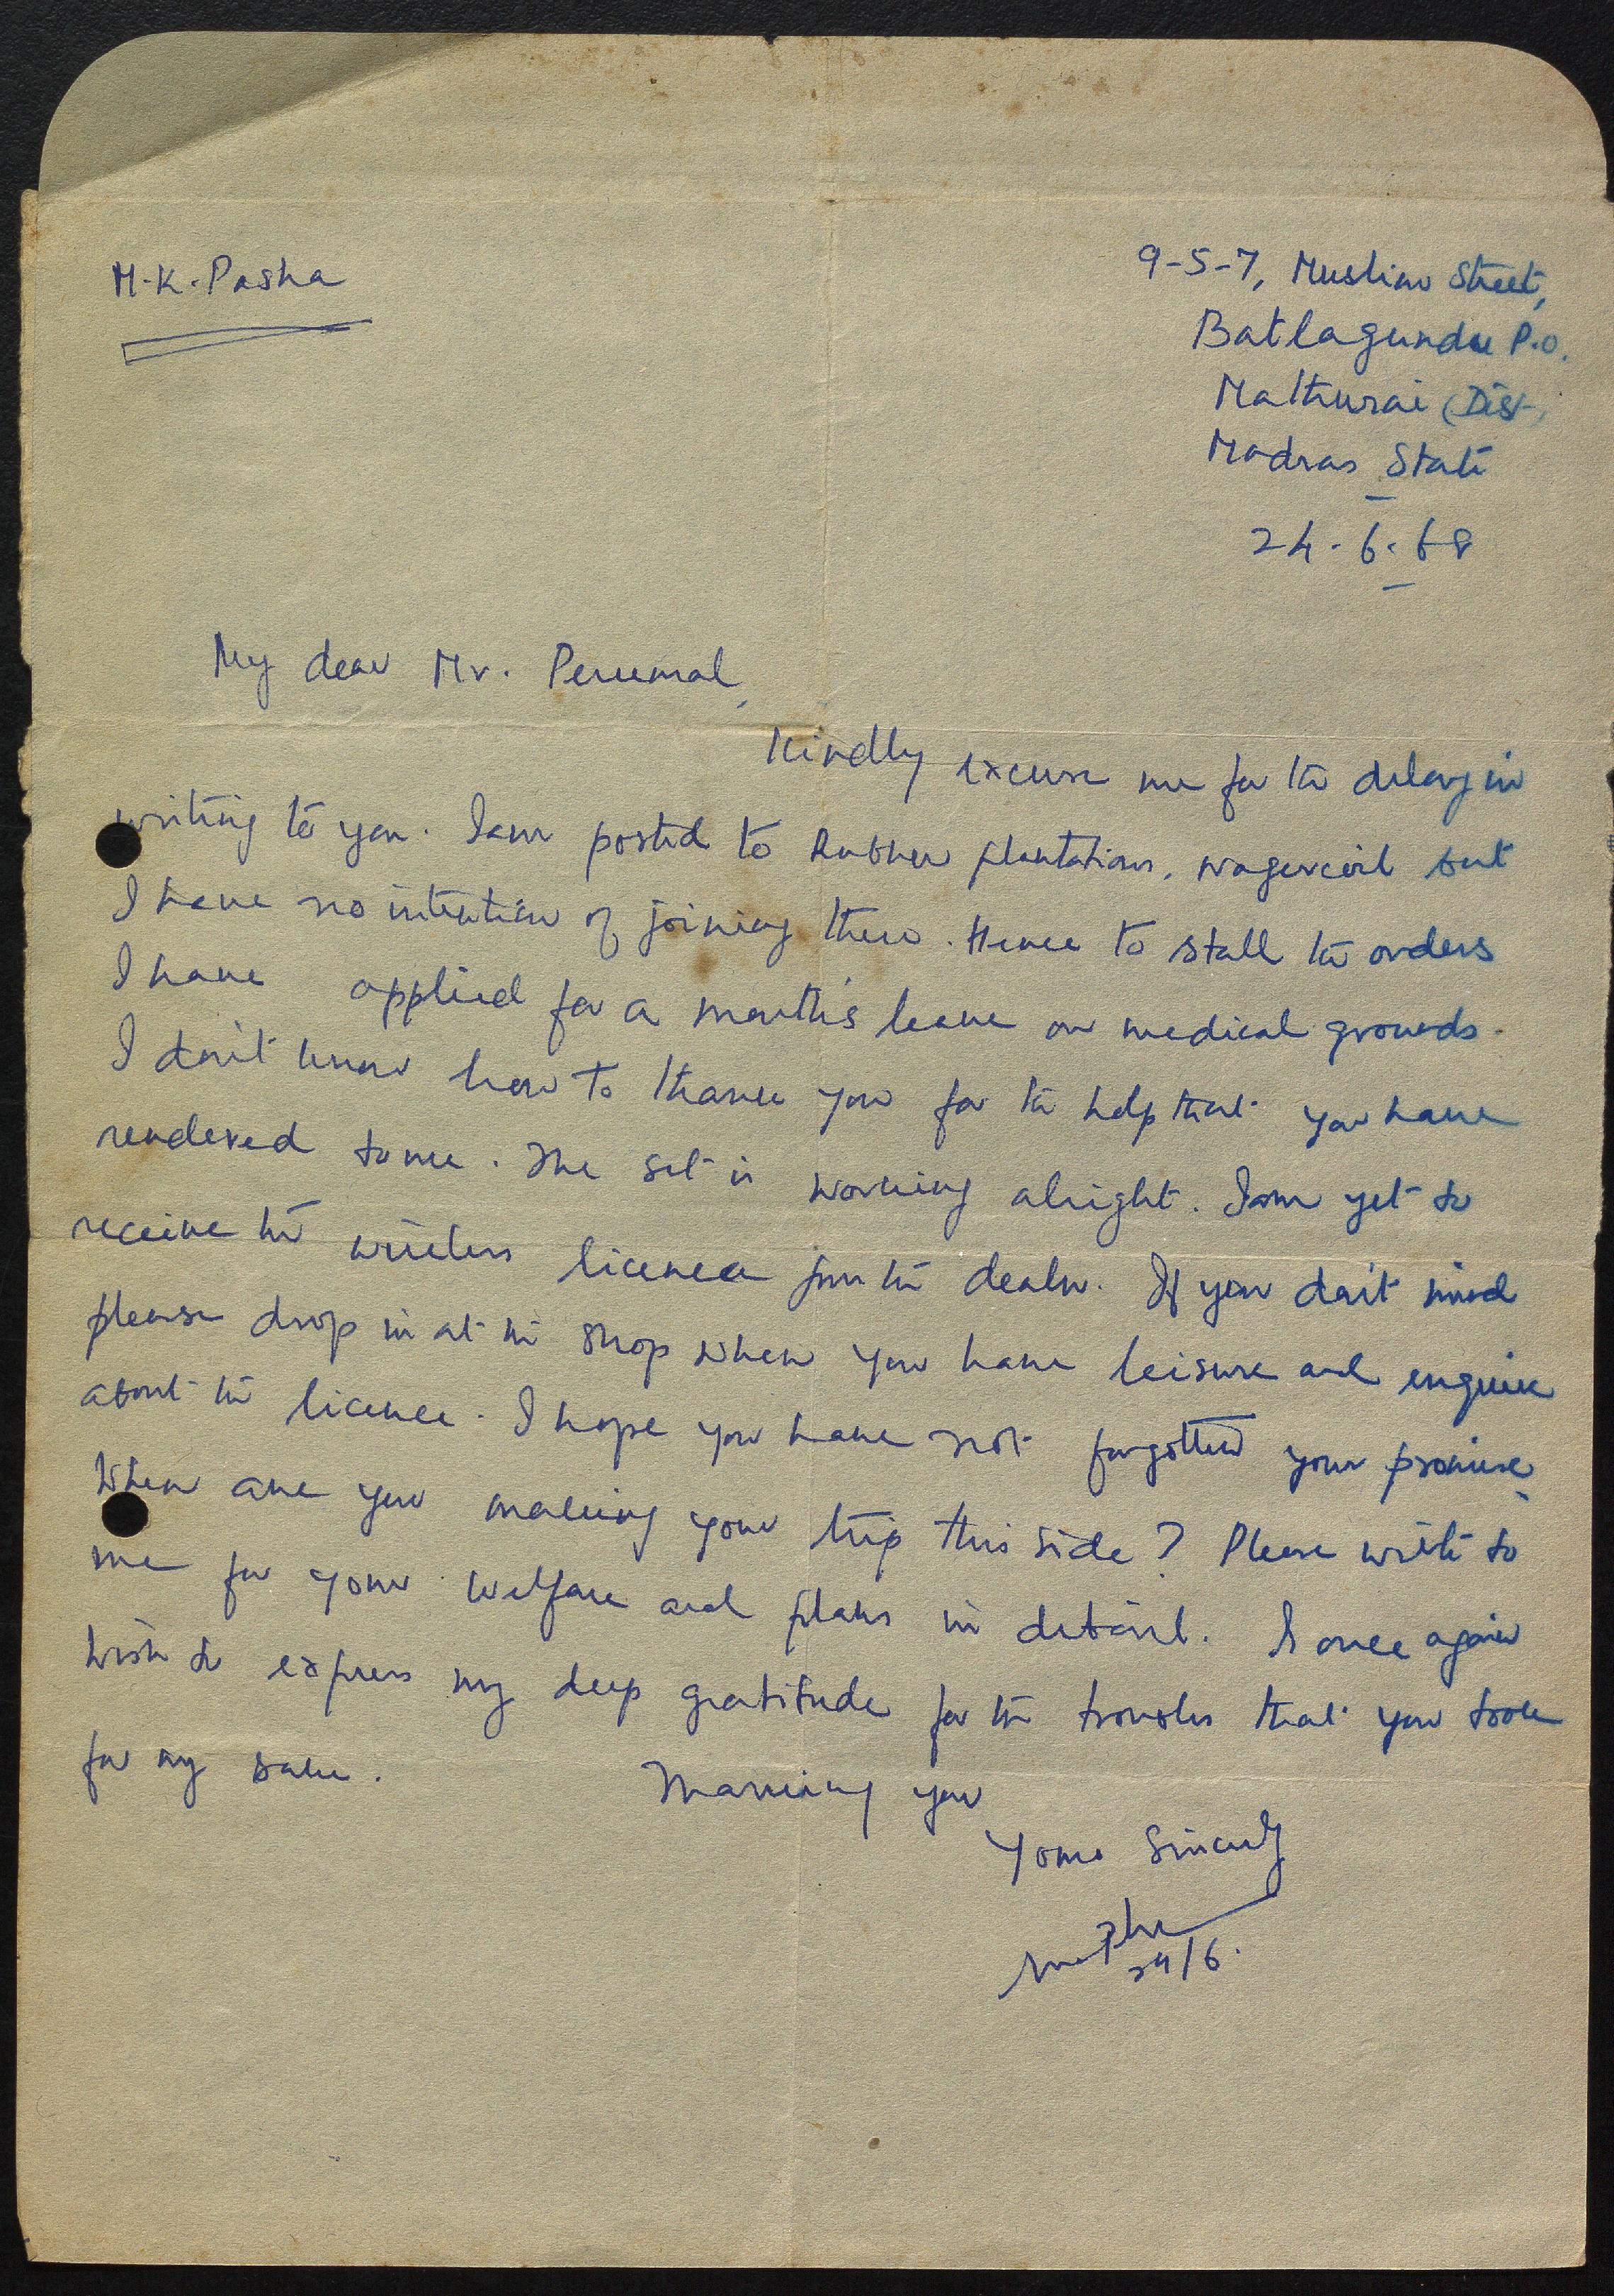 M.K. Pasha
9-5-7, Muslim Street,
Batlagundu P.O.
Mathurai (Dist.)
Madras State
24.6.68
My dear Mr. Perumal,
Kindly excuse me for the delay in
writing to you. I am posted to Rubber plantations, Nagercoil but
I have no intention of joining there. Hence to stall the orders
I have applied for a month's leave on medical grounds.
I don't know how to thank you for the help that you have
rendered to me. The set is working alright. I am yet to
receive the wireless licence from the dealer. If you don't mind
please drop in at the shop when you have leisure and enquire
about the licence. I hope you have not forgotten your promise.
When are you making your trip this side? Please write to
me for your welfare and plans in detail. I once again
wish to express my deep gratitude for the troubles that you took
for my sake.
Thanking you
Yours Sincerely
24/6.